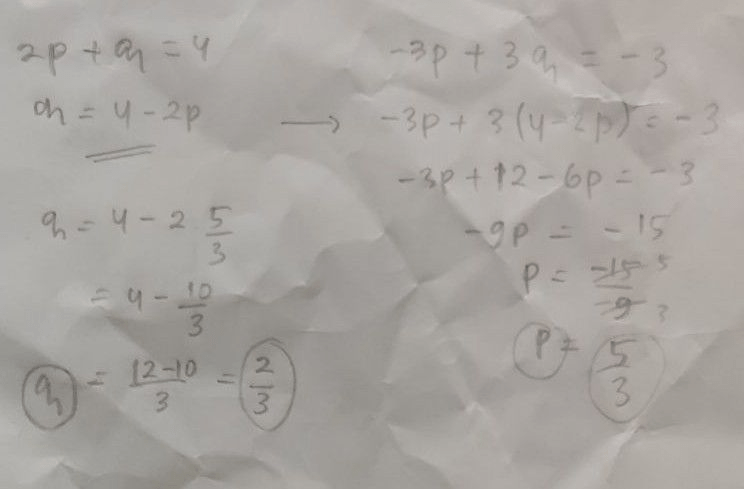 2p + q = 4
q = 4 - 2p
q = 4 - 2 5/3
= 4 - 10/3
q = 12-10/3 = 2/3
-3p + 3q = -3
→ -3p + 3(4-2p) = -3
-3p + 12 - 6p = -3
-9p = -15
p = -15/-9 5/3
p = 5/3